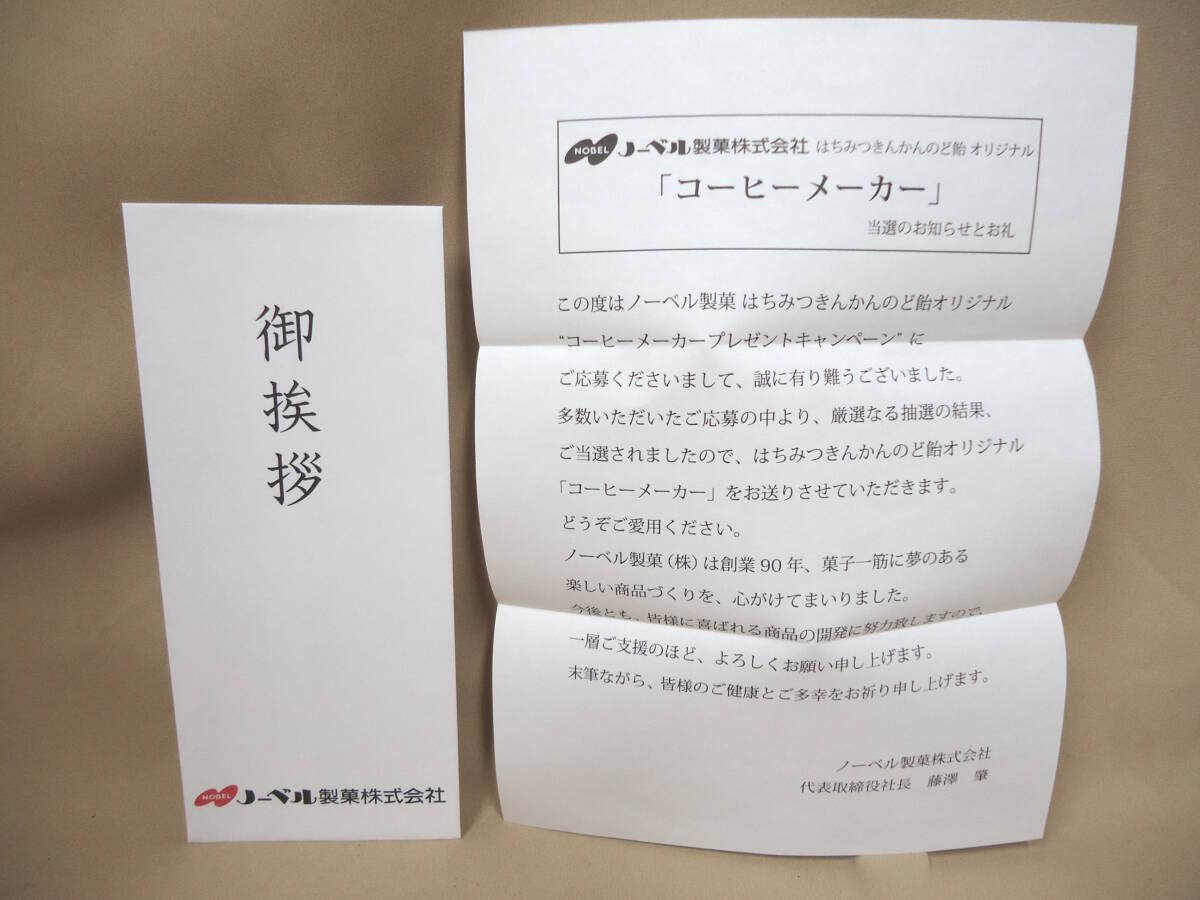 御挨拶
NOBEL ノーベル製菓株式会社
NOBEL ノーベル製菓株式会社 はちみつきんかんのど飴 オリジナル
「コーヒーメーカー」
当選のお知らせとお礼
この度はノーベル製菓 はちみつきんかんのど飴オリジナル
“コーヒーメーカープレゼントキャンペーン”に
ご応募くださいまして、誠に有り難うございました。
多数いただいたご応募の中より、厳選なる抽選の結果、
ご当選されましたので、はちみつきんかんのど飴オリジナル
「コーヒーメーカー」をお送りさせていただきます。
どうぞご愛用ください。
ノーベル製菓（株）は創業90年、菓子一筋に夢のある
楽しい商品づくりを、心がけてまいりました。
今後とも、皆様に喜ばれる商品の開発に努力致しますので、
一層ご支援のほど、よろしくお願い申し上げます。
末筆ながら、皆様のご健康とご多幸をお祈り申し上げます。
ノーベル製菓株式会社
代表取締役社長 藤澤 肇